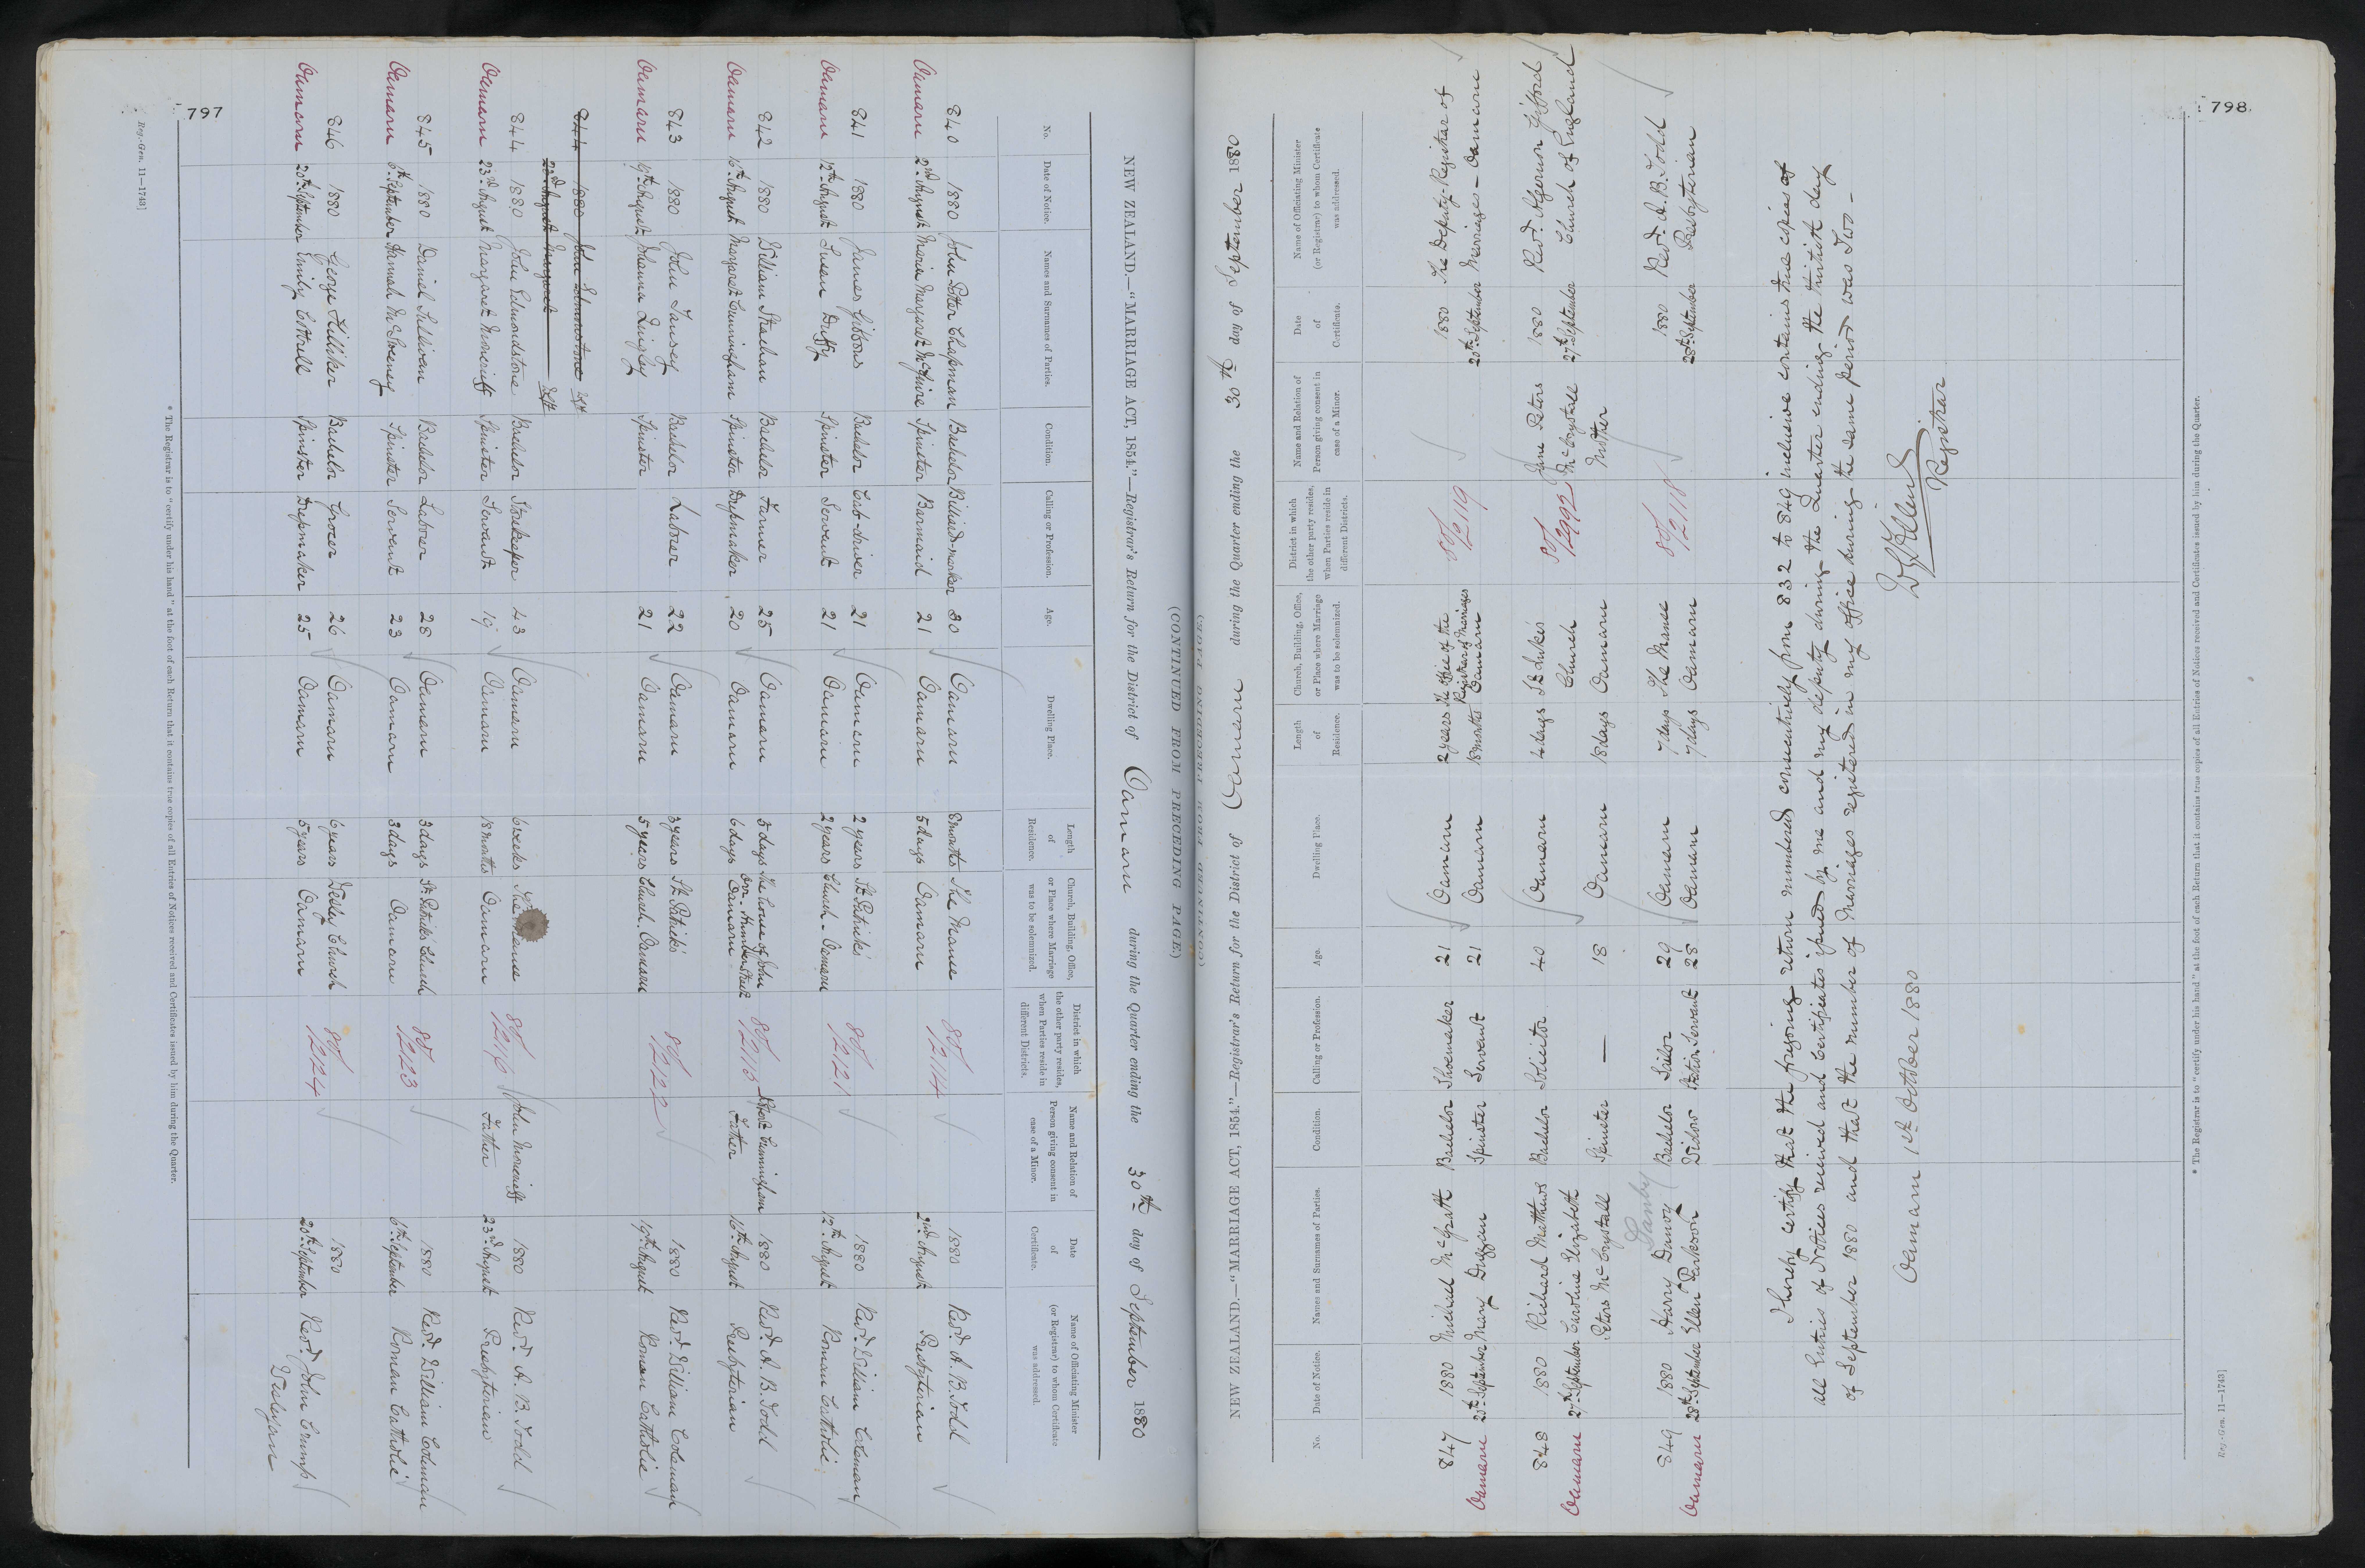 797
NEW ZEALAND.—"MARRIAGE ACT, 1854."—Registrar's Return for the District of Oamaru during the Quarter ending the 30th day of September 1880
(CONTINUED FROM PRECEDING PAGE.)
No. Date of Notice. Names and Surnames of Parties. Condition. Calling or Profession. Age. Dwelling Place. Length of Residence. Church, Building, Office, or Place where Marriage was to be solemnized. District in which the other party resides, when Parties reside in different Districts. Name and Relation of Person giving consent in case of a Minor. Date of Certificate. Name of Officiating Minister (or Registrar) to whom Certificate was addressed.
840 1880 John Potter Chapman Bachelor Billiard-marker 30 Oamaru 8 months The Manse 80/2114 1880 Revd. A. B. Todd
Oamaru 2nd August Maria Margaret McGuire Spinster Barmaid 21 Oamaru 5 days Oamaru 2nd August Presbyterian
841 1880 James Gibbons Bachelor Cab-driver 21 Oamaru 2 years St. Patrick's 80/2121 1880 Revd. William Coleman
Oamaru 12th August Susan Duffy Spinster Servant 21 Oamaru 2 years Church - Oamaru 12th August Roman Catholic
842 1880 William Strachan Bachelor Farmer 25 Oamaru 5 days The house of John Orr, Humber Street Oamaru 80/2115 Robert Cunningham 1880 Revd. A. B. Todd
Oamaru 16th August Margaret Cunningham Spinster Dressmaker 20 Oamaru 6 days Father 16th August Presbyterian
843 1880 John Tansey Bachelor Laborer 22 Oamaru 3 years St. Patrick's 80/2122 1880 Revd. William Coleman
Oamaru 19th August Johanna Quigley Spinster 21 Oamaru 5 years Church. Oamaru 19th August Roman Catholic
844 1880 John Edmonstone
23rd August Margaret
844 1880 John Edmondstone Bachelor Storekeeper 43 Oamaru 6 weeks The Manse 80/2116 John Moncrieff 1880 Revd. A. B. Todd
Oamaru 23rd August Margaret Moncrieff Spinster Servant 19 Oamaru 18 months Oamaru Father 23rd August Presbyterian
845 1880 Daniel Sullivan Bachelor Laborer 28 Oamaru 3 days St. Patrick's Church 80/2123 1880 Revd. William Coleman
Oamaru 6th September Hannah McSweeney Spinster Servant 23 Oamaru 3 days Oamaru 6th September Roman Catholic
846 1880 George Hilliker Bachelor Grocer 26 Oamaru 6 years Wesley Church 80/2124 1880 Revd. John Crump
Oamaru 20th September Emily Cottrell Spinster Dressmaker 25 Oamaru 5 years Oamaru 20th September Wesleyan
* The Registrar is to "certify under his hand" at the foot of each Return that it contains true copies of all Entries of Notices received and Certificates issued by him during the Quarter.
Reg.-Gen. 11—1743]
798
(CONTINUED FROM PRECEDING PAGE.)
NEW ZEALAND.—"MARRIAGE ACT, 1854."—Registrar's Return for the District of Oamaru during the Quarter ending the 30th day of September 1880
No. Date of Notice. Names and Surnames of Parties. Condition. Calling or Profession. Age. Dwelling Place. Length of Residence. Church, Building, Office, or Place where Marriage was to be solemnized. District in which the other party resides, when Parties reside in different Districts. Name and Relation of Person giving consent in case of a Minor. Date of Certificate. Name of Officiating Minister (or Registrar) to whom Certificate was addressed.
847 1880 Michael McGrath Bachelor Shoemaker 21 Oamaru 2 years The Office of the Registrar of Marriages Oamaru 80/2119 1880 The Deputy-Registrar of
Oamaru 20th September Mary Duggan Spinster Servant 21 Oamaru 18 months 20th September Marriages - Oamaru
848 1880 Richard Mathews Bachelor Solicitor 40 Oamaru 4 days St. Luke's 80/2992 Jane Peters 1880 Revd. Algernon Gifford
Oamaru 27th September Caroline Elizabeth Church McCrystall 27th September Church of England
Peters McCrystall Spinster — 18 Oamaru 18 days Oamaru Mother
Samby
849 1880 Harry Danvy Bachelor Sailor 29 Oamaru 7 days The Manse 80/2118 1880 Revd. A. B. Todd
Oamaru 28th September Ellen Parkson Widow Station Servant 28 Oamaru 7 days Oamaru 28th September Presbyterian
I hereby certify that the foregoing return numbered consecutively from 832 to 849 inclusive contains true copies of
all Entries of Notices received and Certificates issued by me and my deputy during the Quarter ending the thirtieth day
of September 1880 and that the number of Marriages registered in my office during the same period was Two -
Registrar
Oamaru 1st October 1880
* The Registrar is to "certify under his hand" at the foot of each Return that it contains true copies of all Entries of Notices received and Certificates issued by him during the Quarter.
Reg.-Gen. 11—1743]